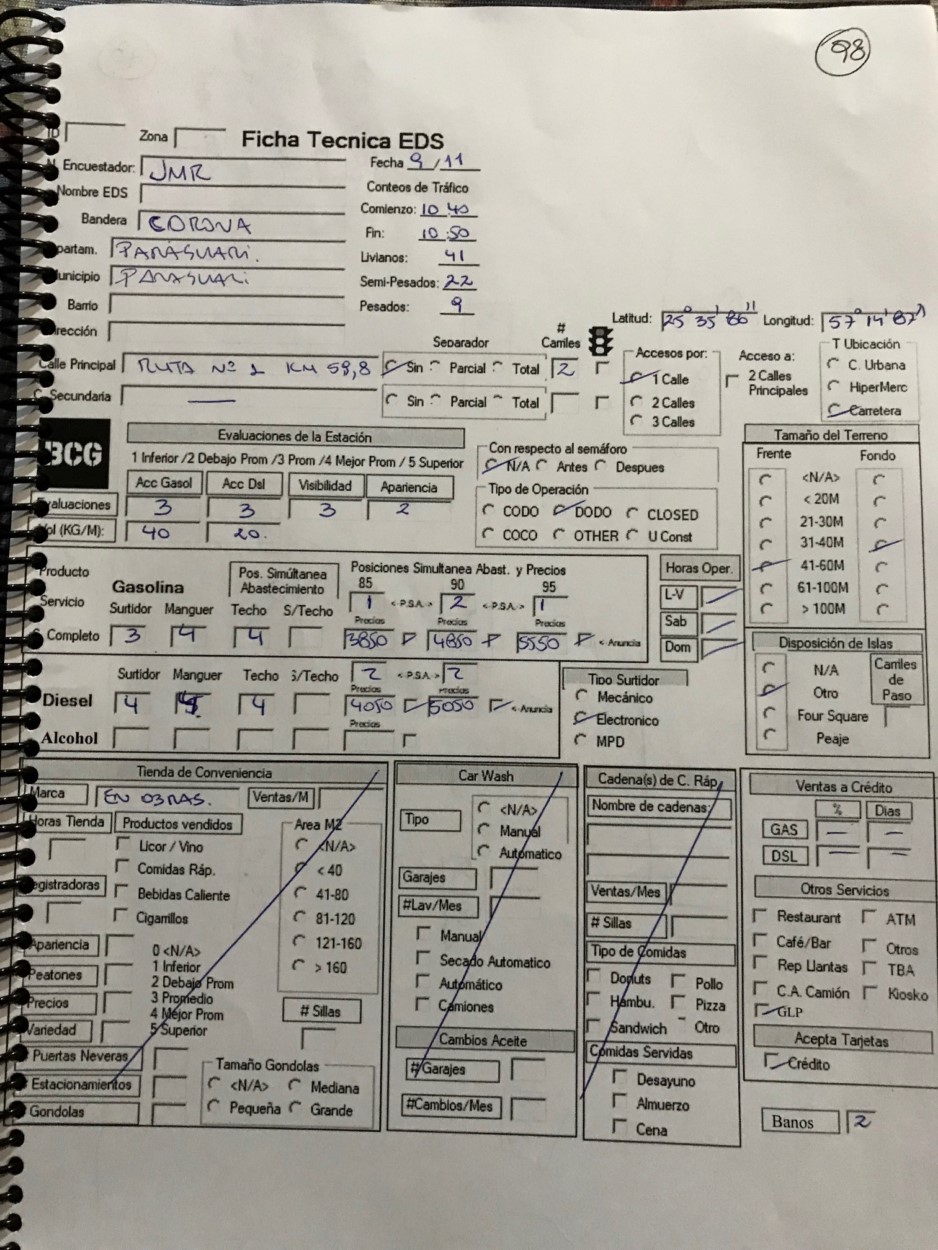 98
ID Zona Ficha Tecnica EDS
N. Encuestador: JMR Fecha 9/11
Nombre EDS Conteos de Tráfico
Bandera CORONA Comienzo: 10 40
partam. PARAGUARI. Fin: 10:50
unicipio PARAGUARI Livianos: 41
Barrio Semi-Pesados: 22
rección Pesados: 9
Latitud: 25° 35' 86'' Longitud: 57° 14' 87''
Separador # Carriles
Calle Principal RUTA Nº 1 KM 59,8 Sin Parcial Total 2
C. Secundaria — Sin Parcial Total
Accesos por:
1 Calle
2 Calles
3 Calles
Acceso a:
2 Calles
Principales
T Ubicación
C. Urbana
HiperMerc
Carretera
BCG
Evaluaciones de la Estación
1 Inferior /2 Debajo Prom /3 Prom /4 Mejor Prom / 5 Superior
Acc Gasol Acc Dsl Visibilidad Apariencia
Evaluaciones 3 3 3 2
Vol (KG/M): 40 20.
Con respecto al semáforo
N/A Antes Despues
Tipo de Operación
CODO DODO CLOSED
COCO OTHER U Const
Tamaño del Terreno
Frente Fondo
<N/A>
< 20M
21-30M
31-40M
41-60M
61-100M
> 100M
Producto
Servicio
Completo
Gasolina
Pos. Simúltanea
Abastecimiento
Posiciones Simultanea Abast. y Precios
85 90 95
1 <P.S.A.> 2 <P.S.A.> 1
Surtidor Manguer Techo S/Techo Precios Precios Precios
3 4 4 3850 4850 5550 <Anuncia
Horas Oper.
L-V
Sab
Dom
Disposición de Islas
N/A
Otro
Four Square
Peaje
Carriles
de
Paso
Surtidor Manguer Techo S/Techo 2 <P.S.A.> 2
Precios Precios
Diesel 4 4 4050 5050 <Anuncia
Precios
Alcohol
Tipo Surtidor
Mecánico
Electronico
MPD
Tienda de Conveniencia
Marca EN OBRAS. Ventas/M
Horas Tienda Productos vendidos Area M2
Licor / Vino <N/A>
Comidas Ráp. < 40
egistradoras Bebidas Caliente 41-80
Cigarrillos 81-120
121-160
> 160
Apariencia 0 <N/A>
Peatones 1 Inferior
2 Debajo Prom
Precios 3 Promedio
4 Mejor Prom # Sillas
Variedad 5 Superior
Puertas Neveras
# Estacionamientos
# Gondolas
Tamaño Gondolas
<N/A> Mediana
Pequeña Grande
Car Wash
Tipo
<N/A>
Manual
Automatico
Garajes
#Lav/Mes
Manual
Secado Automatico
Automático
Camiones
Cambios Aceite
#Garajes
#Cambios/Mes
Cadena(s) de C. Ráp.
Nombre de cadenas:
Ventas/Mes
# Sillas
Tipo de Comidas
Donuts Pollo
Hambu. Pizza
Sandwich Otro
Comidas Servidas
Desayuno
Almuerzo
Cena
Ventas a Crédito
% Dias
GAS — —
DSL — —
Otros Servicios
Restaurant ATM
Café/Bar Otros
Rep Llantas TBA
C.A. Camión Kiosko
GLP
Acepta Tarjetas
Crédito
Banos 2